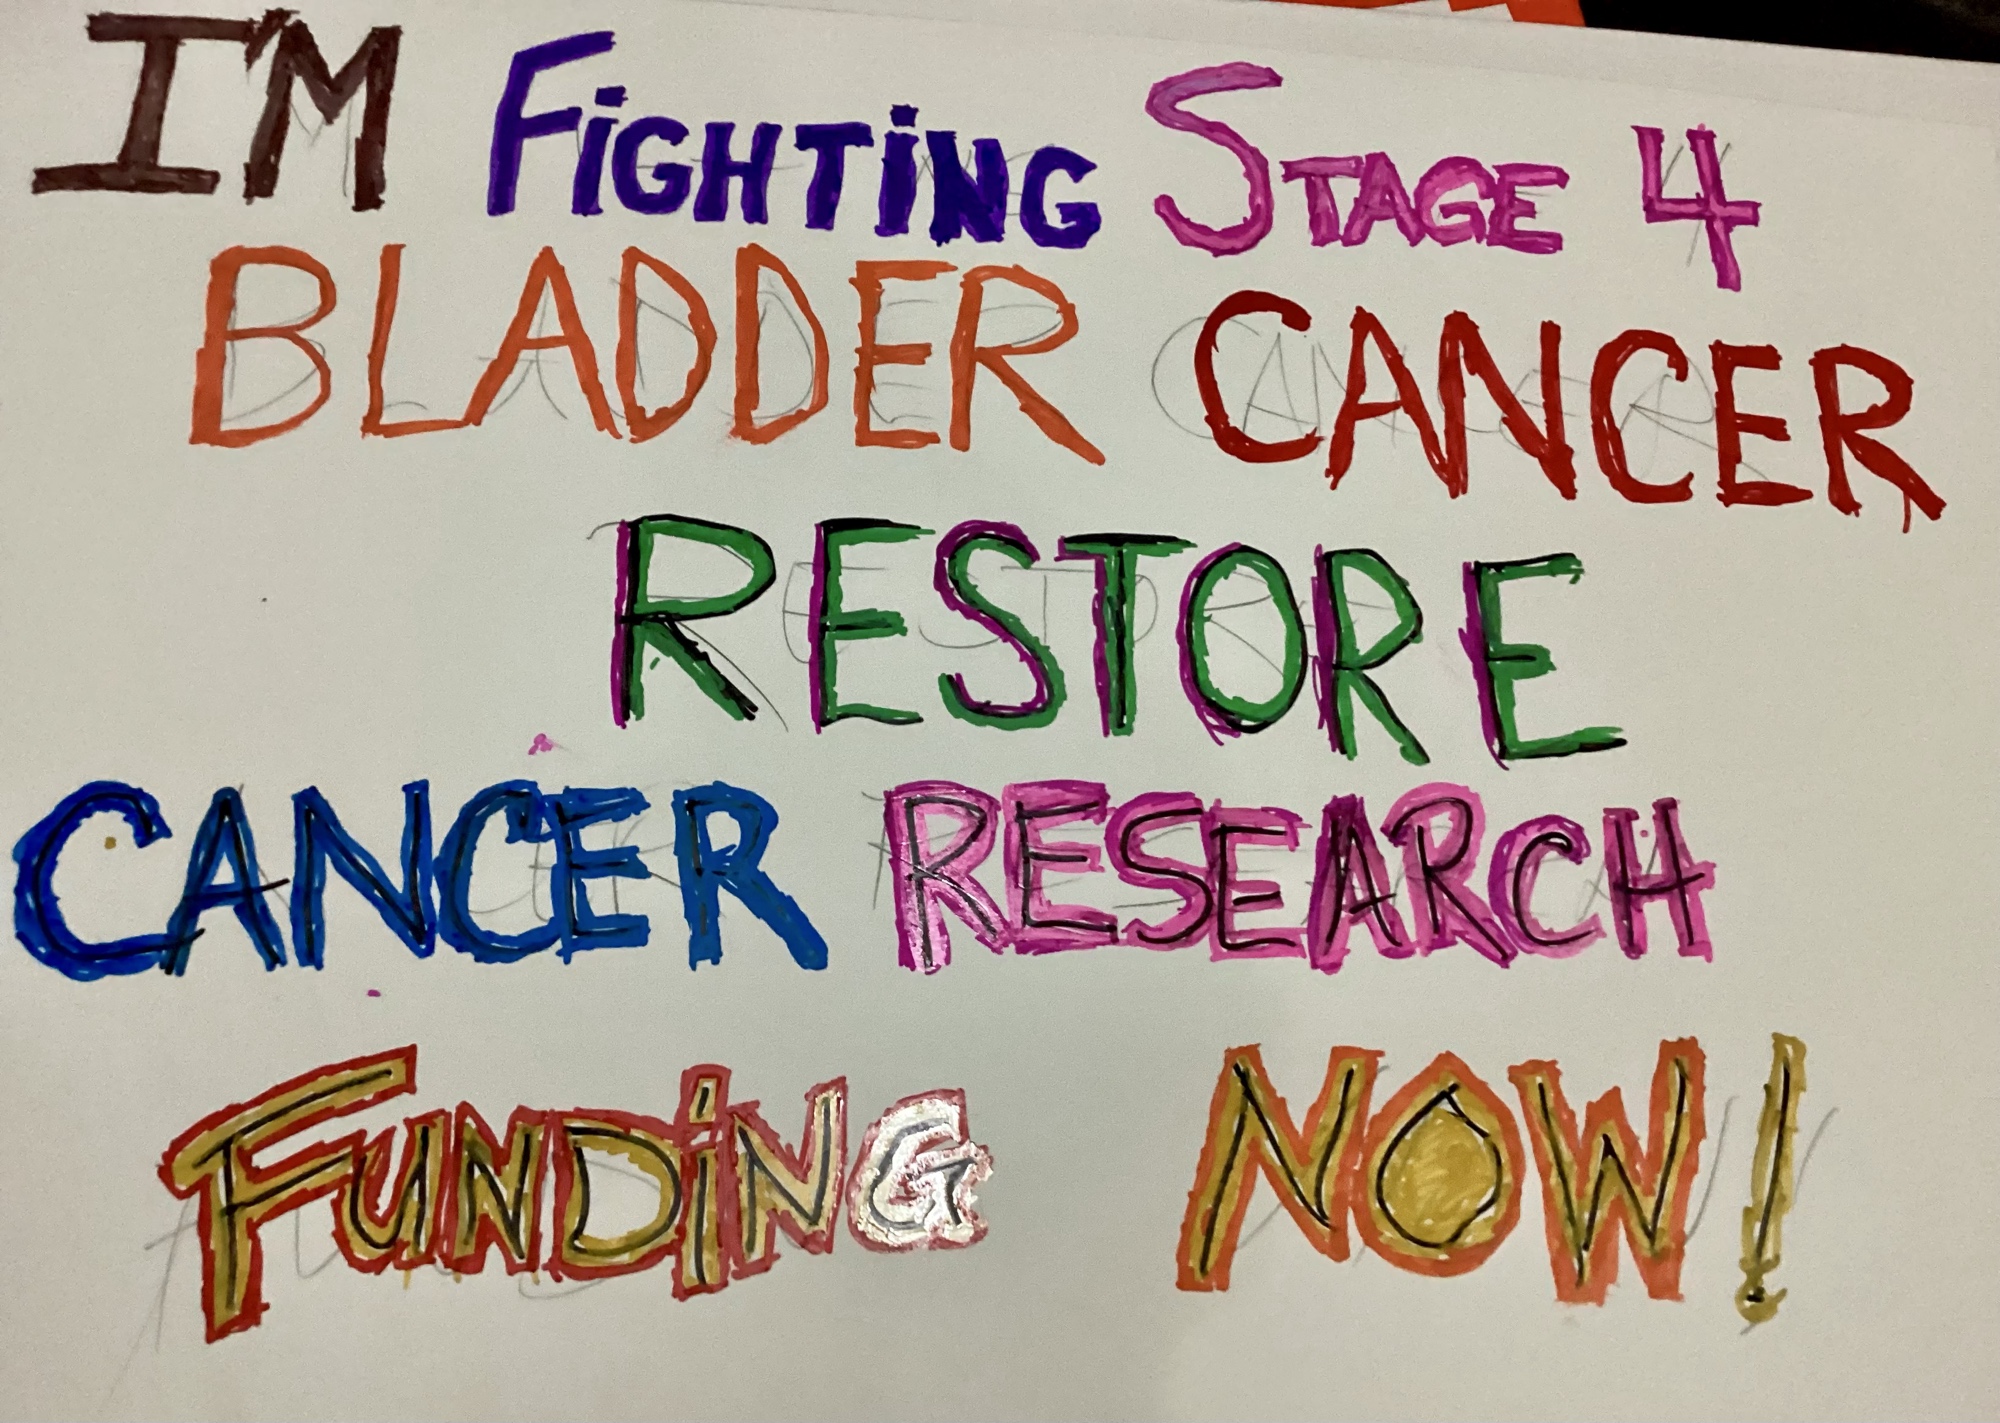 I'M FiGHTiNG STAGE 4
BLADDER CANCER
RESTORE
CANCER RESEARCH
FUNDiNG NOW!